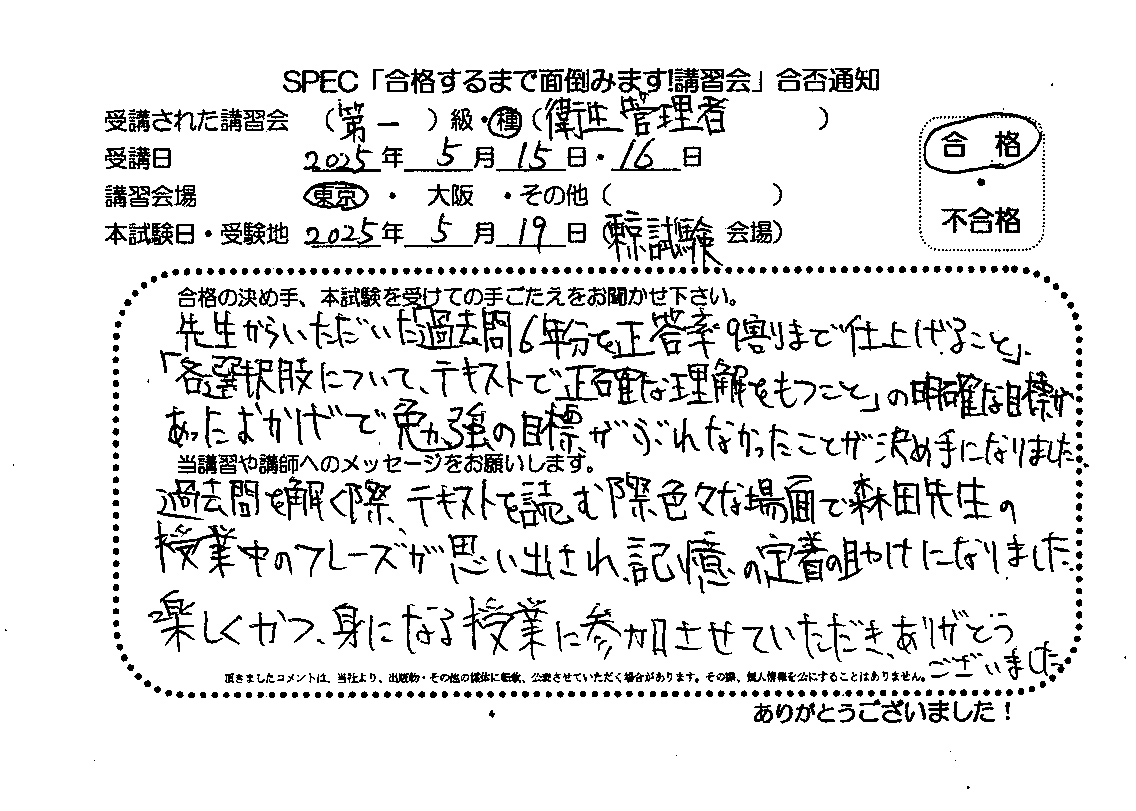 SPEC「合格するまで面倒みます!講習会」合否通知
受講された講習会 （第一）級・種（衛生管理者）
受講日 2025年 5月15日・16日
講習会場 東京 ・ 大阪 ・その他（ ）
本試験日・受験地 2025年 5月19日（東京試験会場）
合 格
・
不合格
合格の決め手、本試験を受けての手ごたえをお聞かせ下さい。
先生からいただいた「過去問6年分を正答率9割まで仕上げること」、
「各選択肢について、テキストで正確な理解をもつこと」の明確な目標が
あったおかげで勉強の目標がぶれなかったことが決め手になりました。
当講習や講師へのメッセージをお願いします。
過去問を解く際、テキストを読む際色々な場面で森田先生の
授業中のフレーズが思い出され、記憶の定着の助けになりました。
楽しくかつ、身になる授業に参加させていただき、ありがとう
ございました。
頂きましたコメントは、当社より、出版物・その他の媒体に転載、公表させていただく場合があります。その際、個人情報を公にすることはありません。
ありがとうございました！